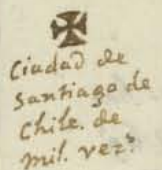 Ciudad de
Santiago de
Chile. de
mil. vez.ˢ